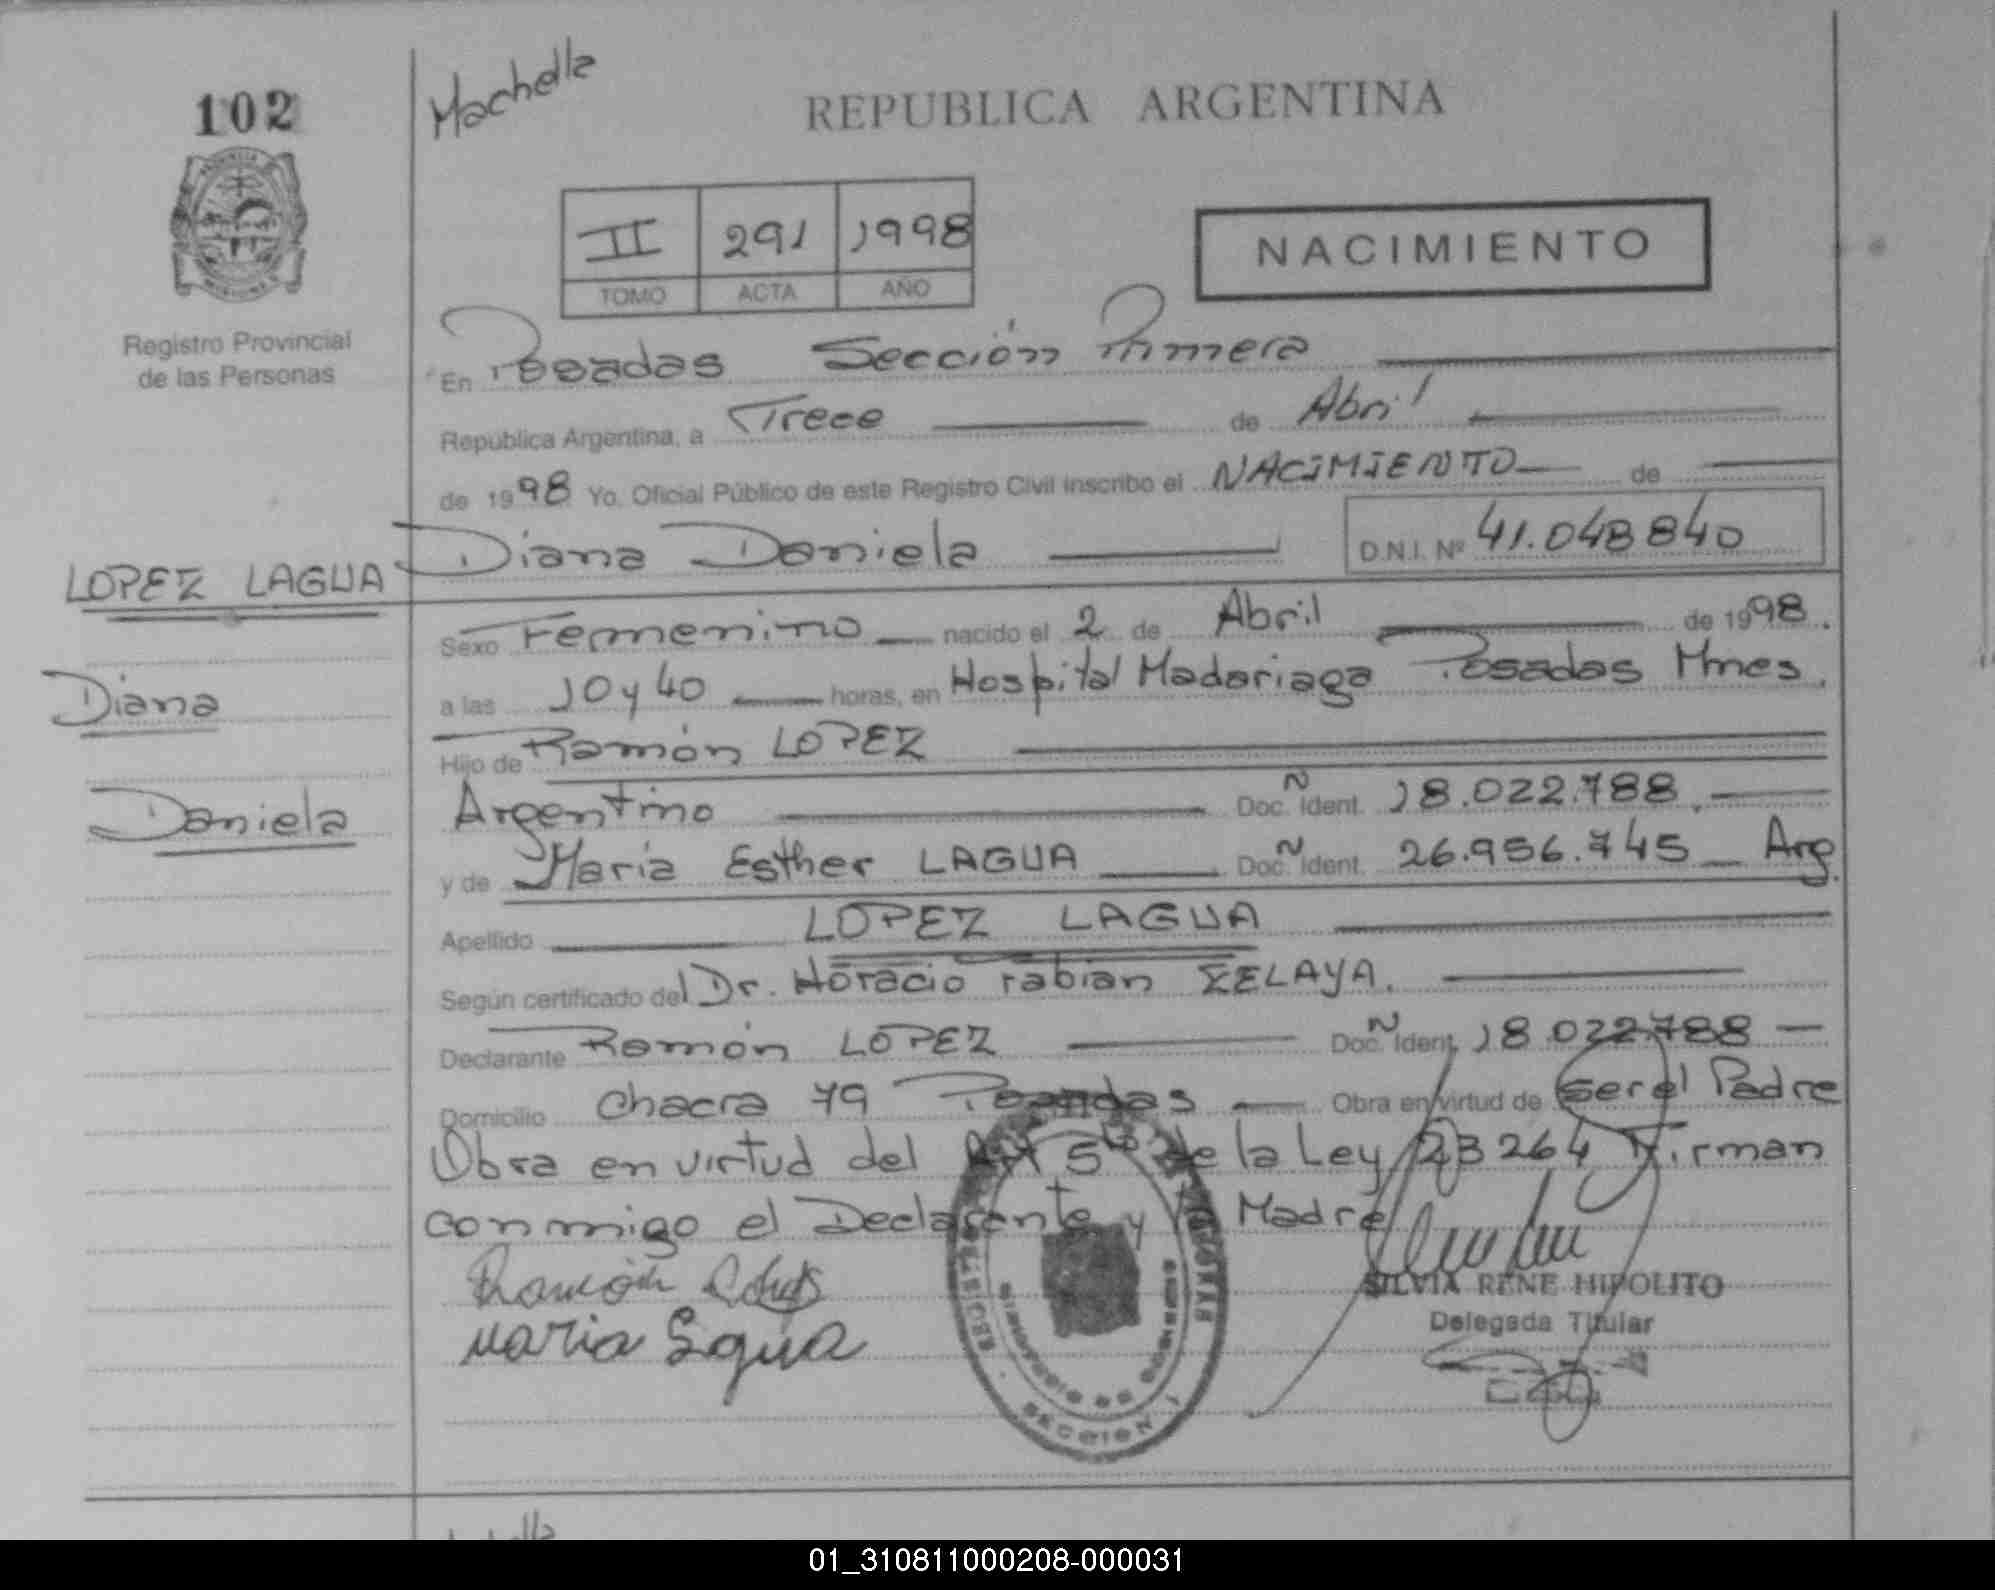 102
Machella
REPUBLICA ARGENTINA
II 291 1998
TOMO ACTA AÑO
NACIMIENTO
Registro Provincial
de las Personas
En Posadas Sección Primera
República Argentina, a Trece de Abril
de 1998 Yo. Oficial Público de este Registro Civil inscribo el NACIMIENTO de
Diana Daniela D.N.I. Nº 41.048840
LOPEZ LAGUA
Diana
Daniela
Sexo Femenino nacido el 2 de Abril de 1998.
a las 10 y 40 horas, en Hospital Madariaga Posadas Mnes.
Hijo de Ramón LOPEZ
Argentino Doc. Ident. 18.022.788.
y de María Esther LAGUA Doc. Ident. 26.956.745 Arg.
Apellido LOPEZ LAGUA
Según certificado del Dr. Horacio Fabian ZELAYA.
Declarante Ramón LOPEZ Doc. Ident. 18.022788
Domicilio Chacra 79 Posadas Obra en virtud de ser el Padre
Obra en virtud del Art 5to de la Ley 23264 Firman
conmigo el Declarante y la Madre
Ramón
Maria Lagua
SILVIA RENE HIPOLITO
Delegada Titular
SECCION 1
01_310811000208-000031